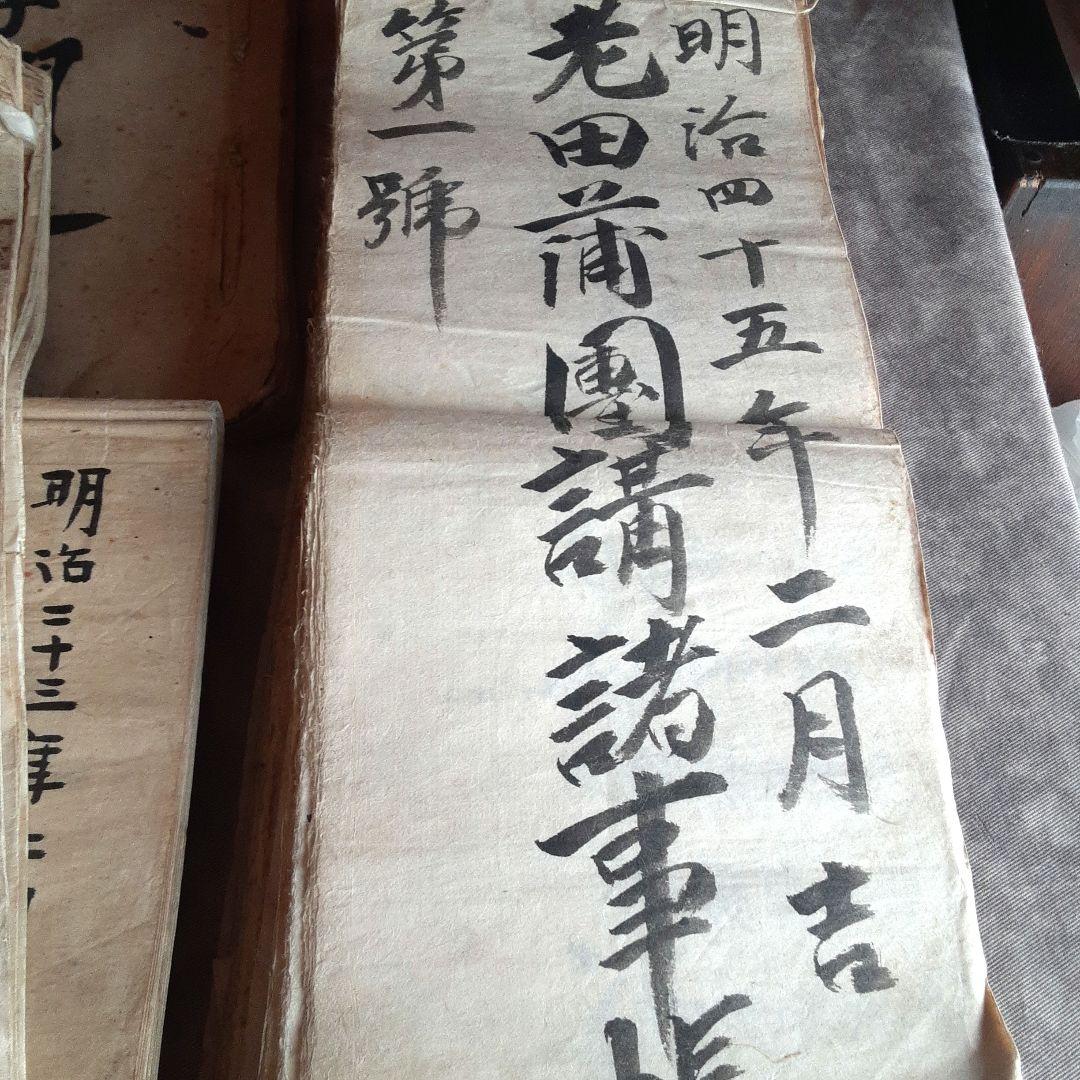 明治四十五年二月吉
老田蒲團講諸事帳
第一號
明治二十三年二